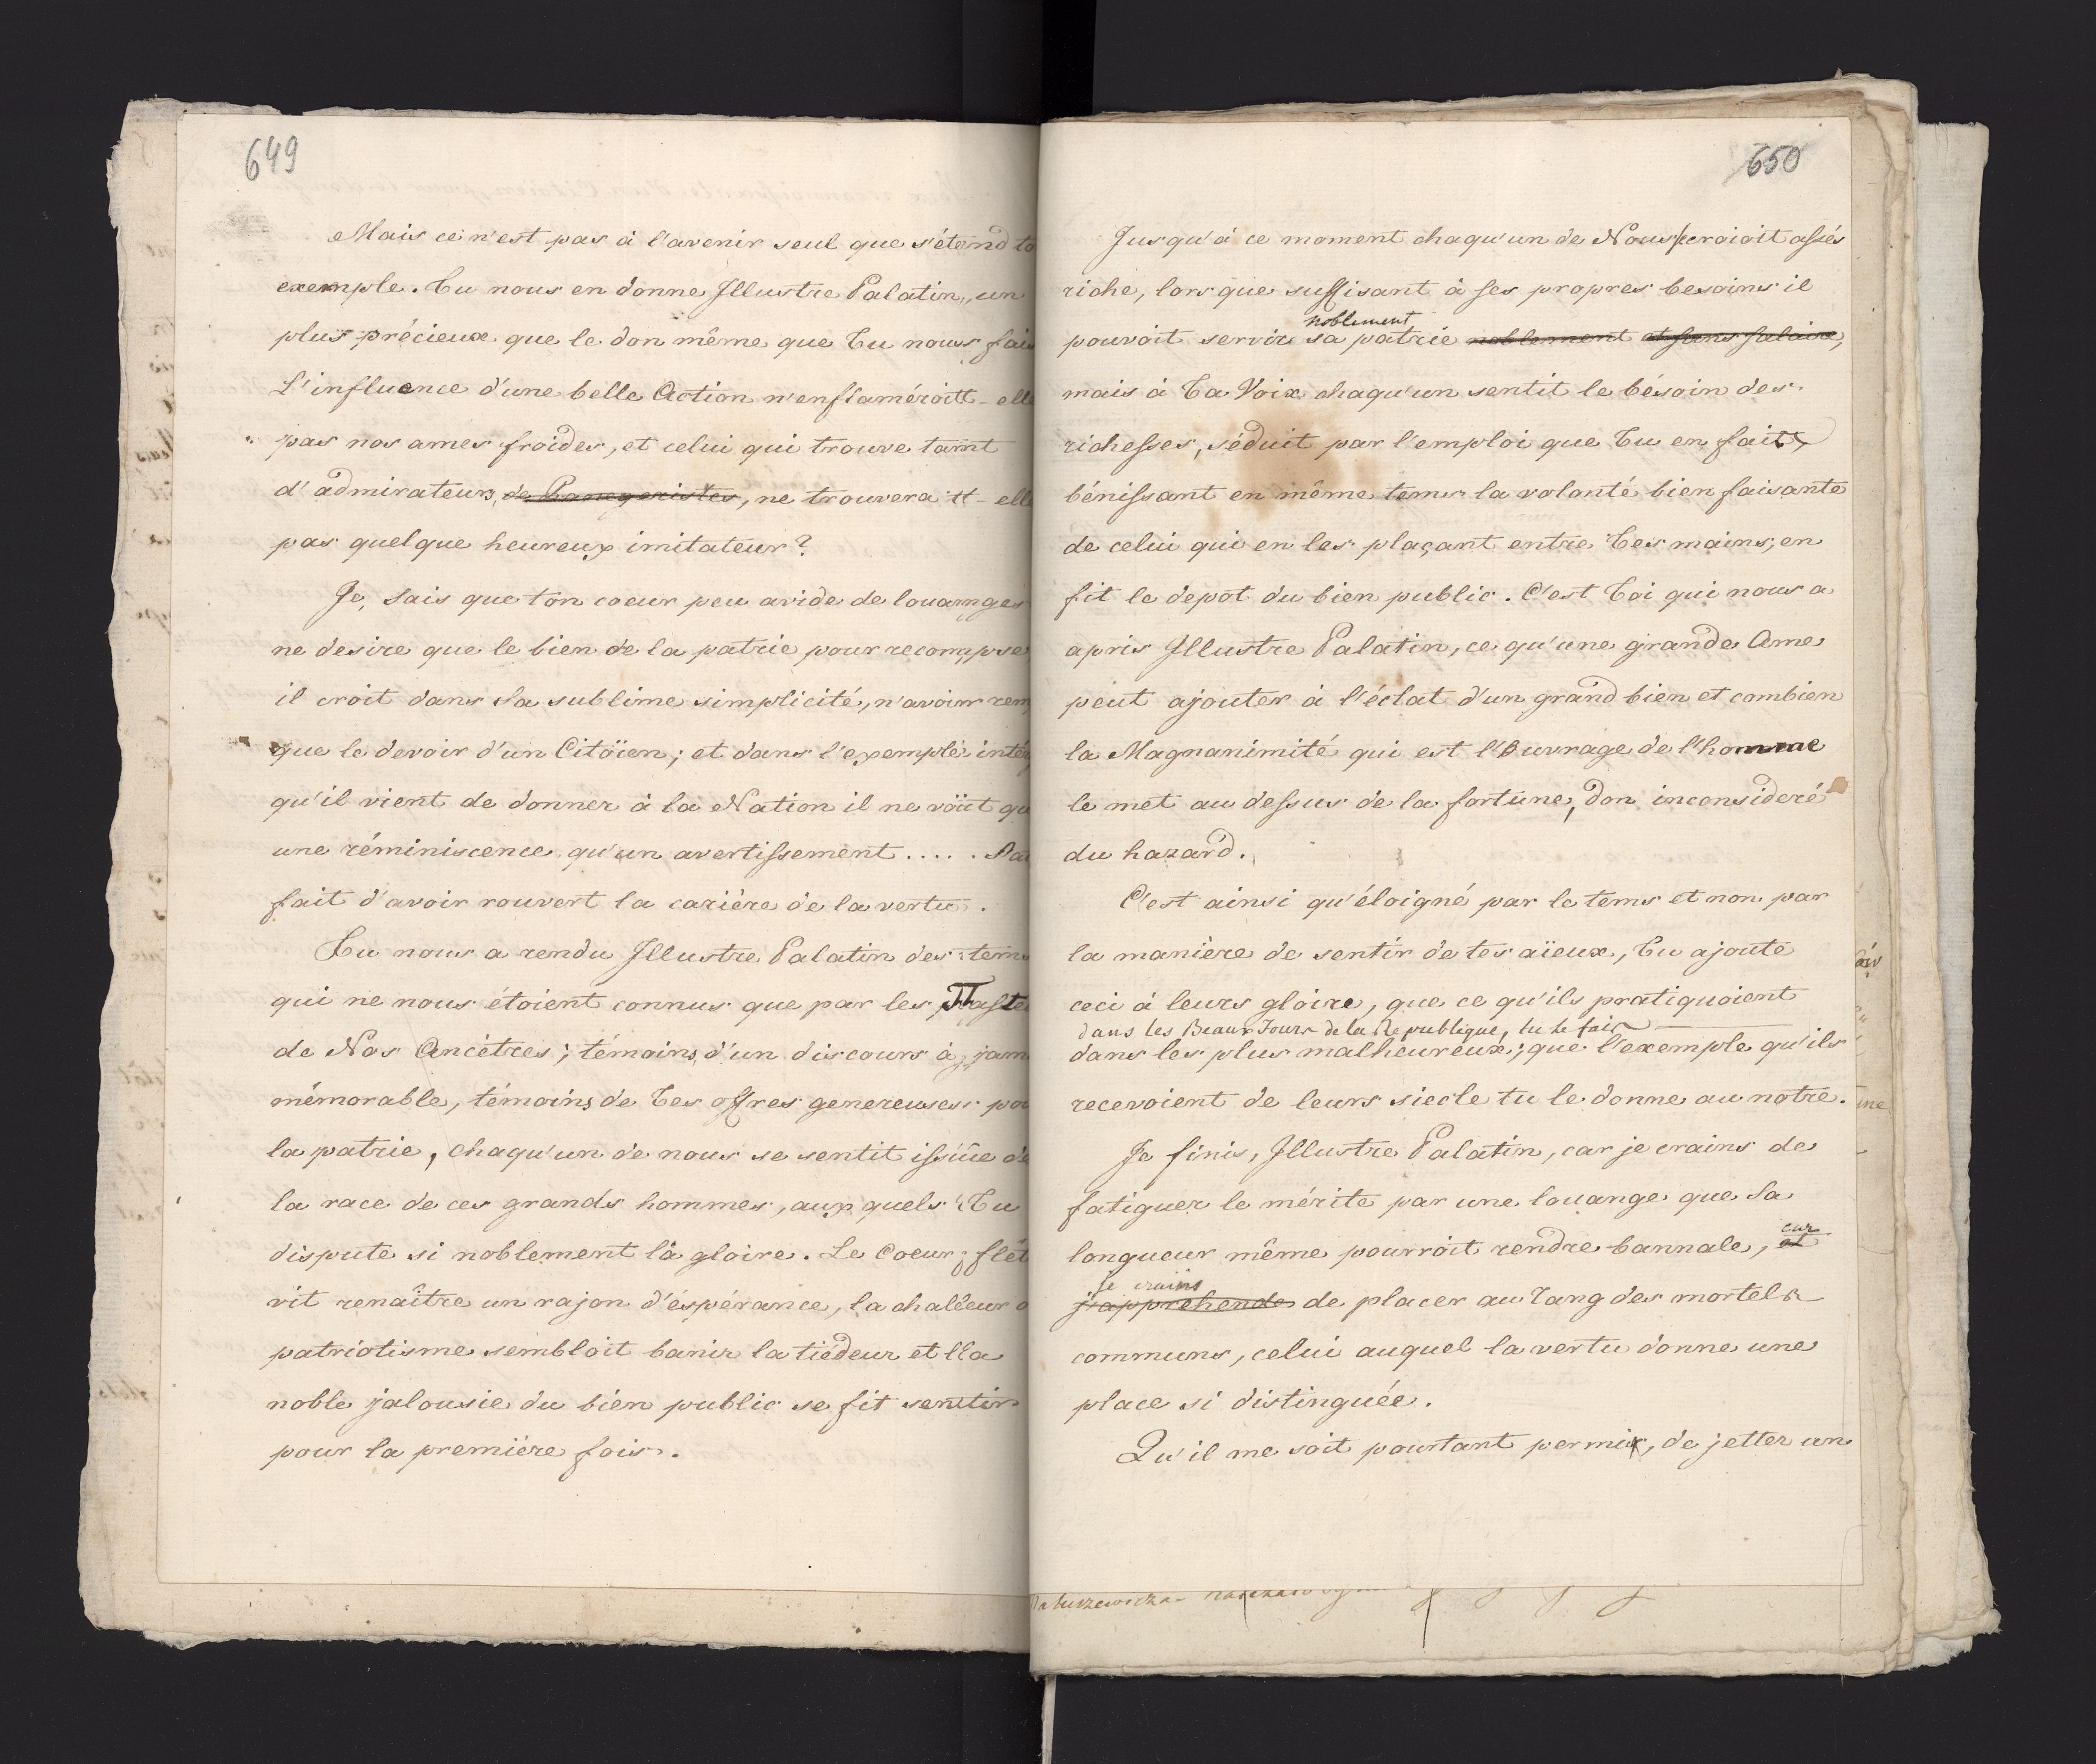 649
Mais ce n'est pas à l'avenir seul que s'étend to
exemple. Tu nous en donne Illustre Palatin, un
plus précieux que le don même que Tu nous fais
L'influence d'une belle Action n'enflaméroitt-elle
pas nos ames froides, et celui qui trouve tant
d'admirateurs, de Panegeristes, ne trouvera tt-elle
pas quelque heureux imitateur?
Je, Sais que ton coeur peu avide de louanges
ne desire que le bien de la patrie pour recompse
il croit dans Sa sublime simplicité, n'avoir rem
que le devoir d'un Citöien; et dans l'exemple intég
qu'il vient de donner à la Nation il ne voit qu
une réminiscence qu'un avertissement ..... Sa
fait d'avoir rouvert la carière de la vertu.
Tu nous a rendu Illustre Palatin des tems
qui ne nous étoient connus que par les Faste
de Nos Ancêtres; témoins d'un discours à jam
mémorable, témoins de Tes offres genereuses po
la patrie, chaqu'un de nous se sentit issüe de
la race de ces grands hommes, aux quels Tu
dispute si noblement la gloire. Le Coeur flét
vit renaître un rajon d'éspérance, la chaleur
patriotisme sembloit banir la tiédeur et lla
noble jalousie du bien public se fit sentir
pour la premiére fois.
650
Jusqu'à ce moment chaqu'un de Nous se croioit assés
riche, lorsque suffisant à ses propres besoins il
noblement
pouvoit servir sa patrie noblement et sans salaire,
mais à Ta Voix chaqu'un sentit le bésoin des
richesses, séduit par l'emploi que Tu en fait,
bénissant en même tems la volonté bien faisante
de celui qui en les plaçant entre Tes mains, en
fit le depot du bien public. C'est Toi qui nous a
apris Illustre Palatin, ce qu'une grande Ame
peut ajouter à l'éclat d'un grand bien et combien
la Magnanimité qui est l'Ouvrage de l'homme
le met au dessus de la fortune, don inconsideré
du hazard.
C'est ainsi qu'éloigné par le tems et non par
la manière de sentir de tes aïeux, Tu ajoute
ceci à leurs gloire, que ce qu'ils pratiquoient
dans les Beaux Jours de la Republique, tu le fais
dans les plus malheureux; que l'exemple qu'ils
recevoient de leurs siecle tu le donne au notre.
Je finis, Illustre Palatin, car je crains de
fatiguer le mérite par une louange que Sa
longueur même pourroit rendre bannale, et
car
je crains
j'apprehende de placer au rang des mortels
communs, celui auquel la vertu donne une
place si distinguée.
Qu'il me soit pourtant permis, de jetter un